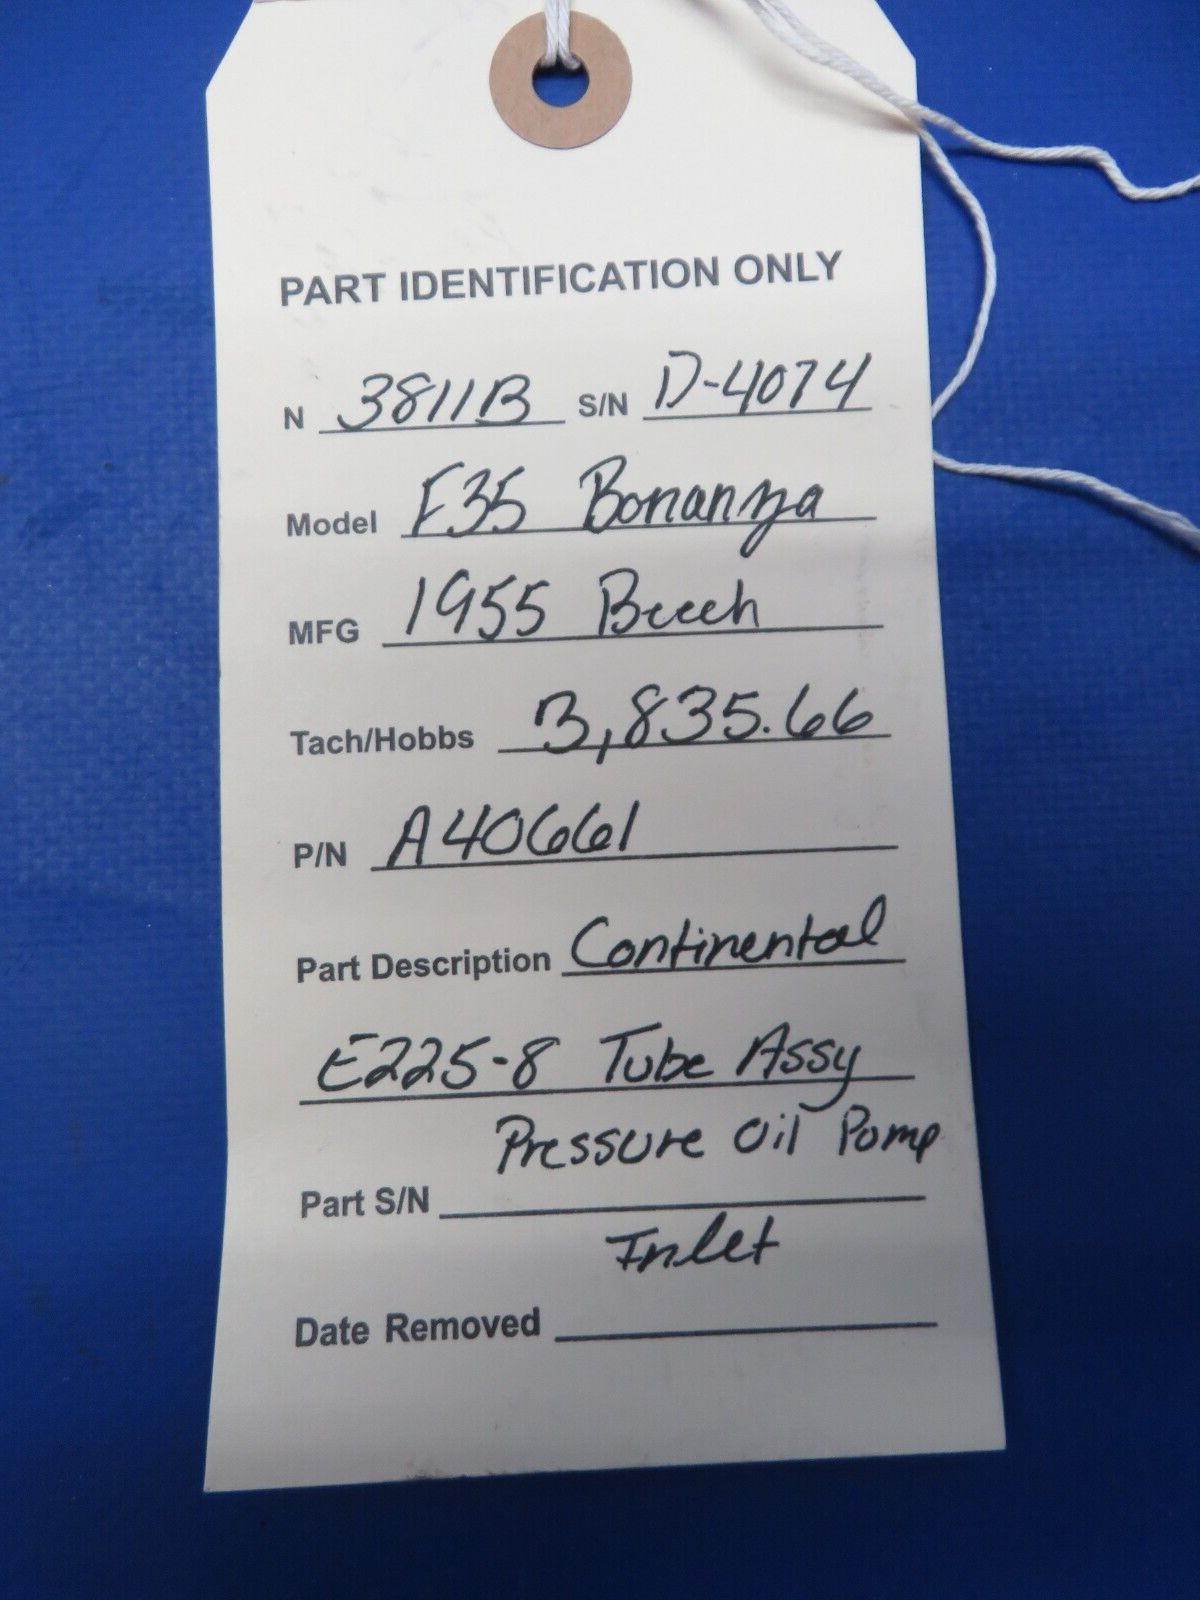 PART IDENTIFICATION ONLY
N 3811B S/N D-4074
Model F35 Bonanza
MFG 1955 Beech
Tach/Hobbs 3,835.66
P/N A40661
Part Description Continental
E225-8 Tube Assy
Pressure Oil Pump
Part S/N
Inlet
Date Removed